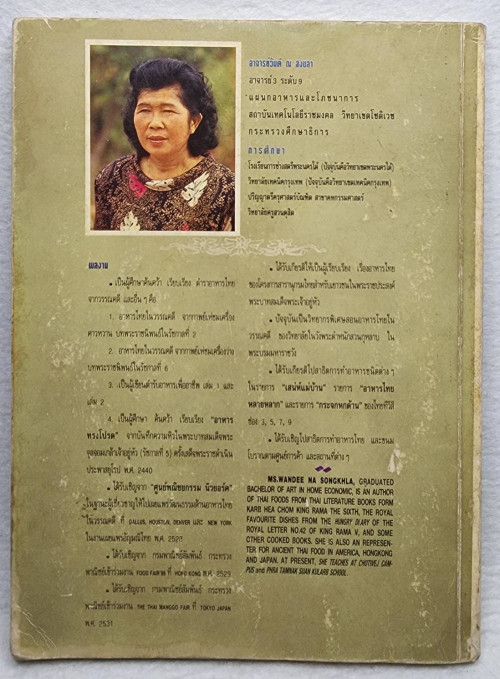 อาจารย์วันดี ณ สงขลา
อาจารย์ 3 ระดับ 9
แผนกอาหารและโภชนาการ
สถาบันเทคโนโลยีราชมงคล วิทยาเขตโชติเวช
กระทรวงศึกษาธิการ
การศึกษา
โรงเรียนการช่างสตรีพระนครใต้ (ปัจจุบันคือวิทยาเขตพระนครใต้)
วิทยาลัยเทคนิคกรุงเทพ (ปัจจุบันคือวิทยาเขตเทคนิคกรุงเทพ)
ปริญญาตรีครุศาสตร์บัณฑิต สาขาคหกรรมศาสตร์
วิทยาลัยครูสวนดุสิต
ผลงาน
เป็นผู้ศึกษาค้นคว้า เรียบเรียง ตำราอาหารไทย
จากวรรณคดี และอื่น ๆ คือ
1. อาหารไทยในวรรณคดี จากกาพย์เห่ชมเครื่อง
คาวหวาน บทพระราชนิพนธ์ในรัชกาลที่ 2
2. อาหารไทยในวรรณคดี จากกาพย์เห่ชมเครื่องว่าง
บทพระราชนิพนธ์ในรัชกาลที่ 6
3. เป็นผู้เขียนตำรับอาหารเพื่ออาชีพ เล่ม 1 และ
เล่ม 2
4. เป็นผู้ศึกษา ค้นคว้า เรียบเรียง "อาหาร
ทรงโปรด" จากบันทึกความหิวในพระบาทสมเด็จพระ
จุลจอมเกล้าเจ้าอยู่หัว (รัชกาลที่ 5) ครั้งเสด็จพระราชดำเนิน
ประพาสยุโรป พ.ศ. 2440
ได้รับเชิญจาก "ศูนย์พณิชยกรรม นิวยอร์ค"
ในฐานะผู้เชี่ยวชาญให้ไปเผยแพร่วัฒนธรรมด้านอาหารไทย
ในวรรณคดี ที่ DALLUS, HOUSTUS, DENVER และ NEW YORK
ในงานเผยแพร่อัญมณีไทย พ.ศ. 2528
ได้รับเชิญจาก กรมพาณิชย์สัมพันธ์ กระทรวง
พาณิชย์เข้าร่วมงาน FOOD FAIR'86 ที่ HONG KONG พ.ศ. 2529
ได้รับเชิญจาก กรมพาณิชย์สัมพันธ์ กระทรวง
พาณิชย์เข้าร่วมงาน THE THAI MANGGO FAIR ที่ TOKYO JAPAN
พ.ศ. 2531
ได้รับเกียรติให้เป็นผู้เรียบเรียง เรื่องอาหารไทย
ของโครงการสารานุกรมไทยสำหรับเยาวชนในพระราชประสงค์
พระบาทสมเด็จพระเจ้าอยู่หัว
ปัจจุบันเป็นวิทยากรพิเศษสอนอาหารไทยใน
วรรณคดี ของวิทยาลัยในวังพระตำหนักสวนกุหลาบ ใน
พระบรมมหาราชวัง
ได้รับเกียรติไปสาธิตการทำอาหารชนิดต่าง ๆ
ในรายการ "เสน่ห์แม่บ้าน" รายการ "อาหารไทย
หลายหลาก" และรายการ "กระจกหกด้าน" ของไทยทีวีสี
ช่อง 3, 5, 7, 9
ได้รับเชิญไปสาธิตการทำอาหารไทย และขนม
โบราณตามศูนย์การค้า และสถานที่ต่าง ๆ
MS.WANDEE NA SONGKHLA, GRADUATED
BACHELOR OF ART IN HOME ECONOMIC, IS AN AUTHOR
OF THAI FOODS FROM THAI LITERATURE BOOKS FORM
KARB HEA CHOM KING RAMA THE SIXTH, THE ROYAL
FAVOURITE DISHES FROM THE HUNGRY DIARY OF THE
ROYAL LETTER NO.42 OF KING RAMA V, AND SOME
OTHER COOKED BOOKS. SHE IS ALSO AN REPRESEN-
TER FOR ANCIENT THAI FOOD IN AMERICA, HONGKONG
AND JAPAN. AT PRESENT, SHE TEACHES AT CHOTIVEJ CAM-
PUS and PHRA TAMNAK SUAN KULARB SCHOOL.